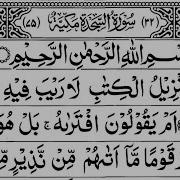 (٣٢) سُوْرَةُ السَّجْدَةِ مَكِّيَّةٌ (٧٥)
سْمِ اللهِ الرَّحْمٰنِ الرَّحِيْمِ
نْزِيْلُ الْكِتٰبِ لَا رَيْبَ فِيْهِ
اَمْ يَقُوْلُوْنَ افْتَرٰىهُ ۚ بَلْ هُوَ
قَوْمًا مَّاۤ اَتٰىهُمْ مِّنْ نَّذِيْرٍ مِّ